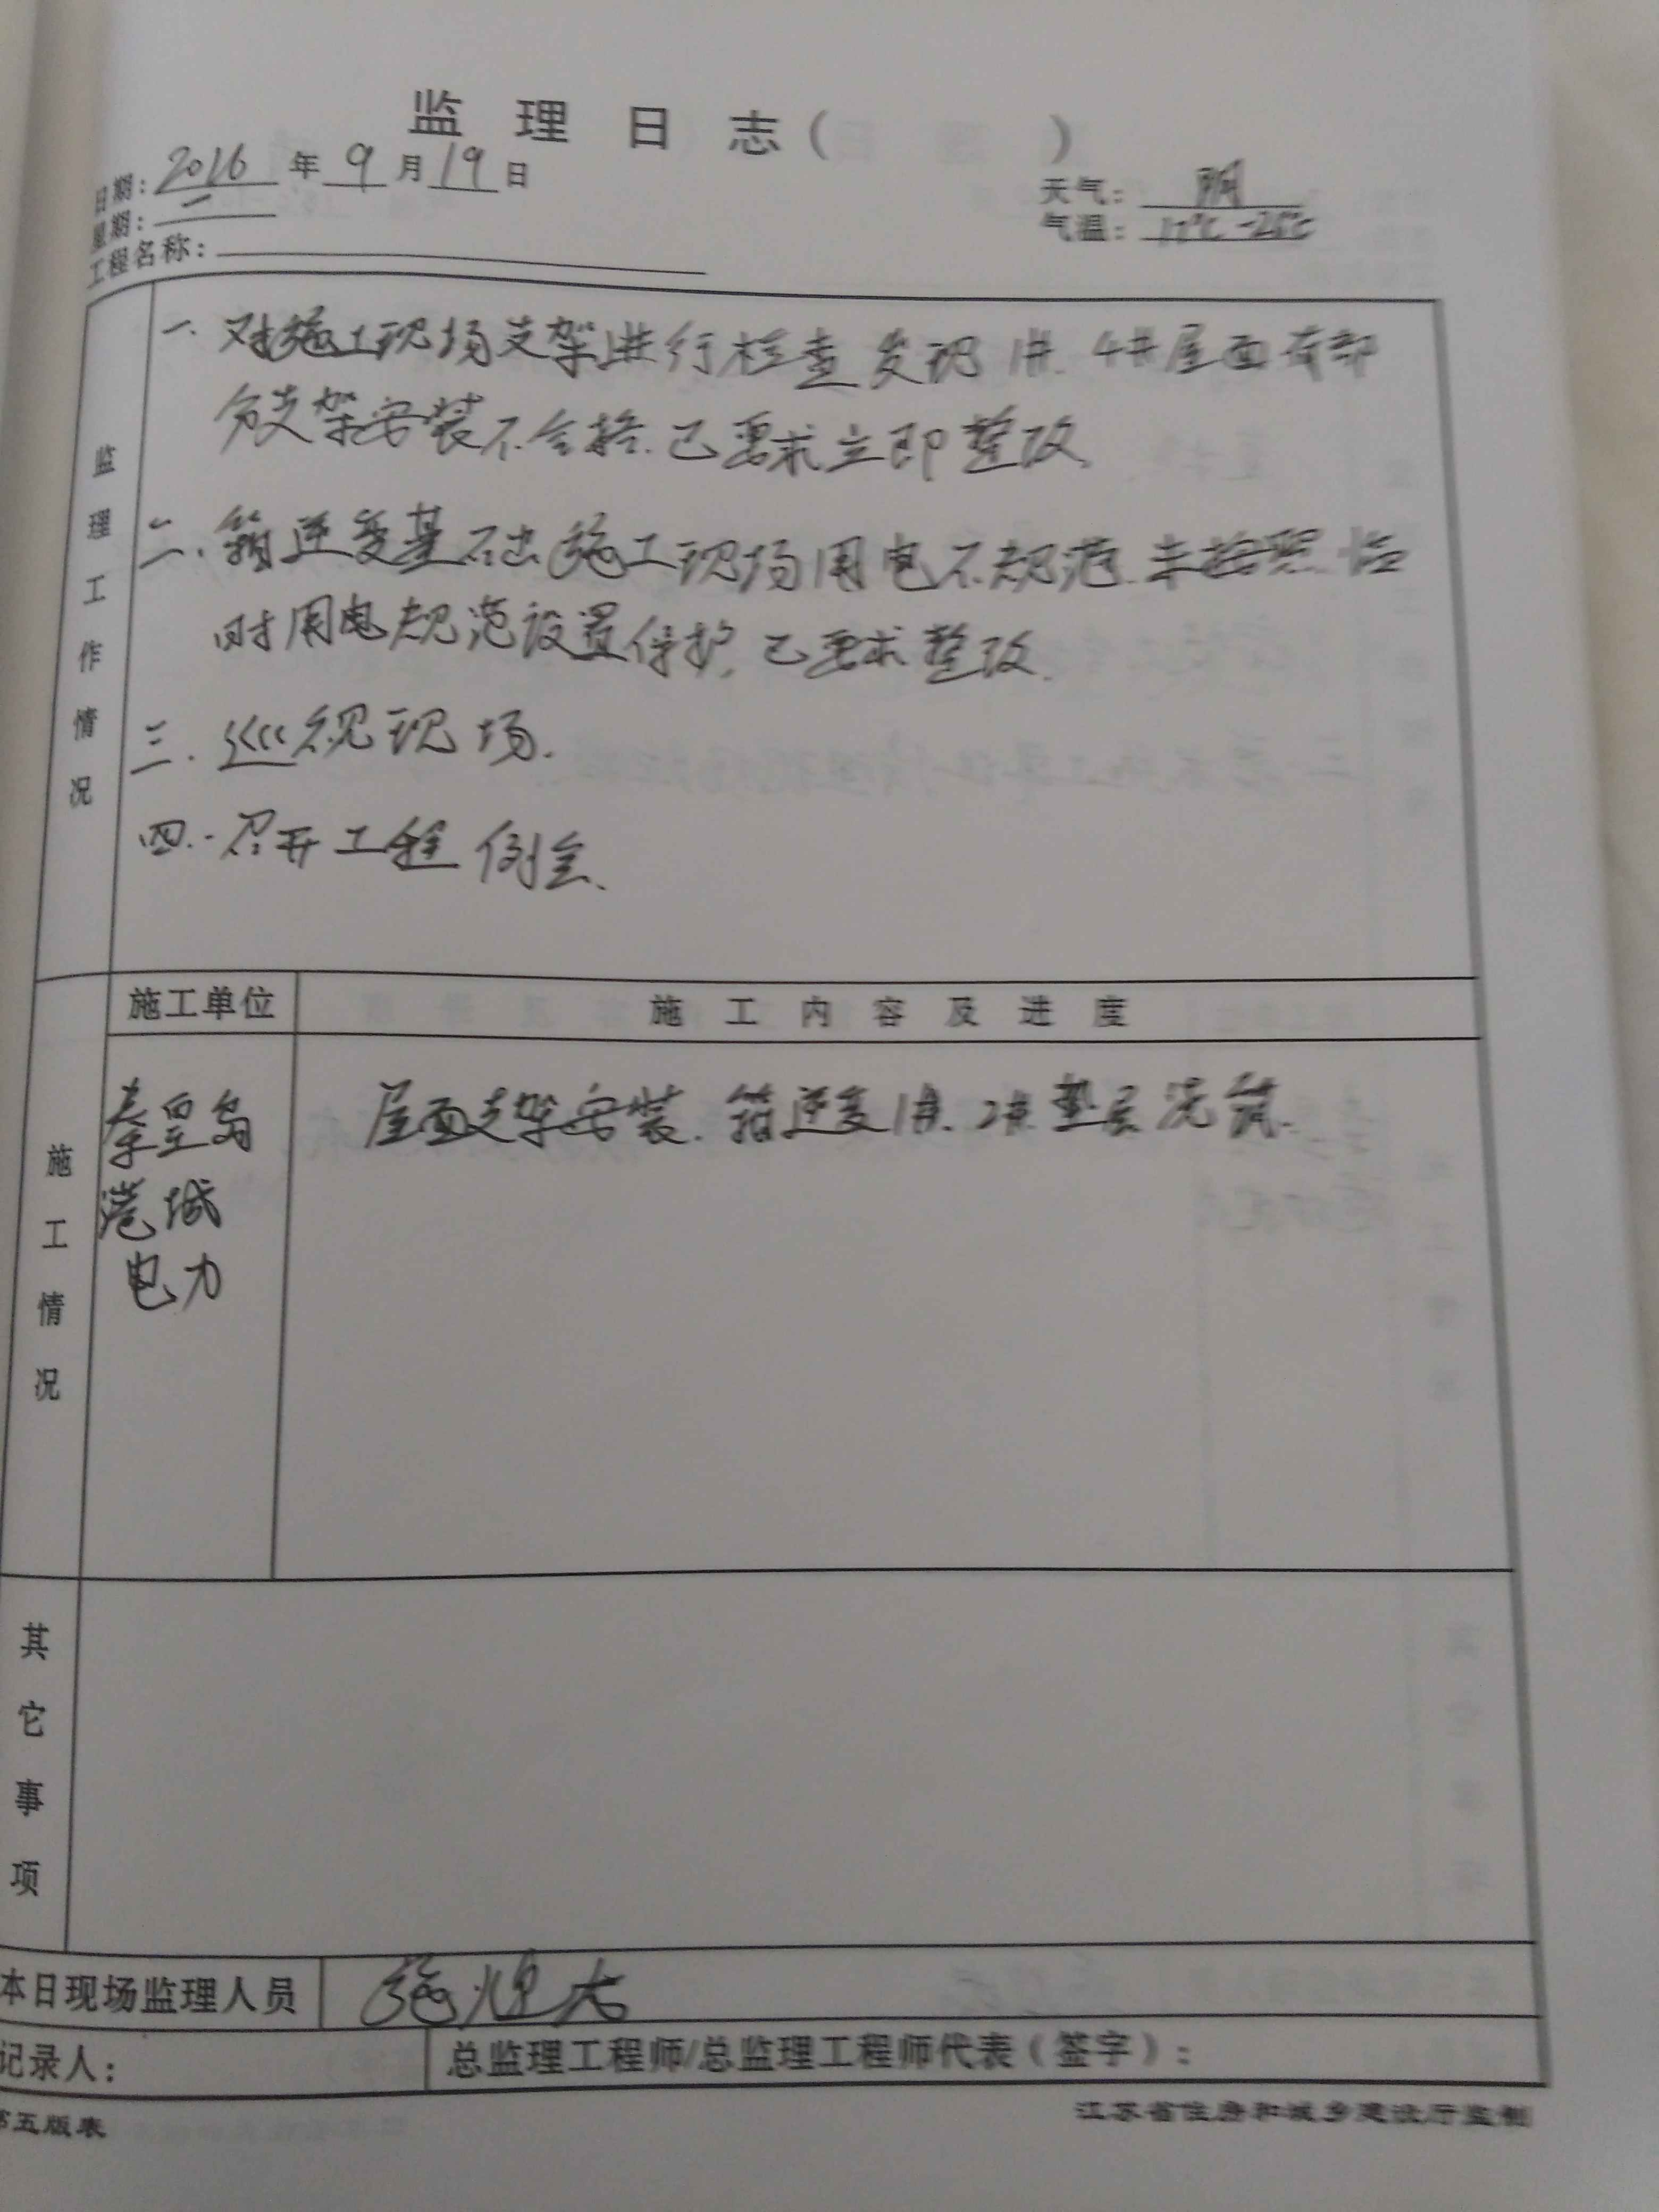 监理日志( )
日期: 2016 年 9 月 19 日
天气: 阴
星期: 一
气温: 17℃-26℃
工程名称:
监理工作情况
一. 对施工现场支架进行检查发现1#. 4#屋面有部
分支架安装不合格. 已要求立即整改.
二. 箱逆变基础施工现场用电不规范. 未按照临
时用电规范设置保护. 已要求整改.
三. 巡视现场.
四. 召开工程例会.
施工单位 施工内容及进度
施工情况
秦皇岛
港城
电力
屋面支架安装. 箱逆变1#. 2#垫层浇筑.
其它事项
本日现场监理人员 施煌
记录人: 总监理工程师/总监理工程师代表(签字):
第五版表 江苏省住房和城乡建设厅监制